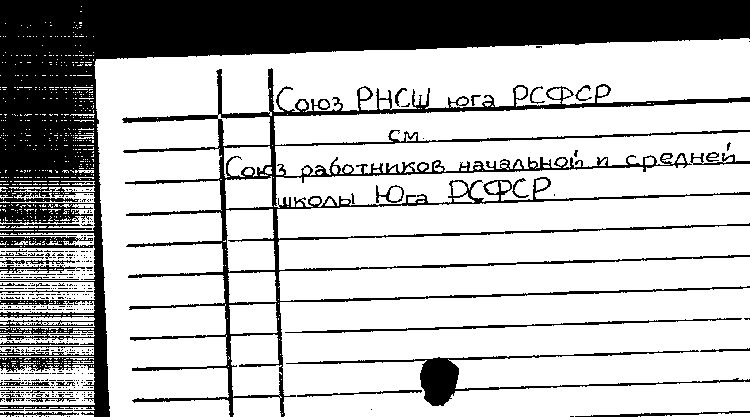 Союз РНСШ юга РСФСР
см.
Союз работников начальной и средней
школы Юга РСФСР.